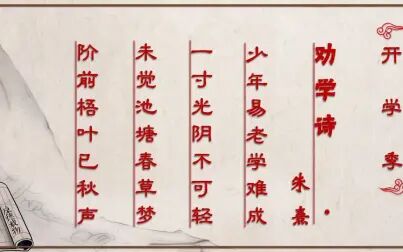 开学季
劝学诗·
朱熹
少年易老学难成
一寸光阴不可轻
未觉池塘春草梦
阶前梧叶已秋声